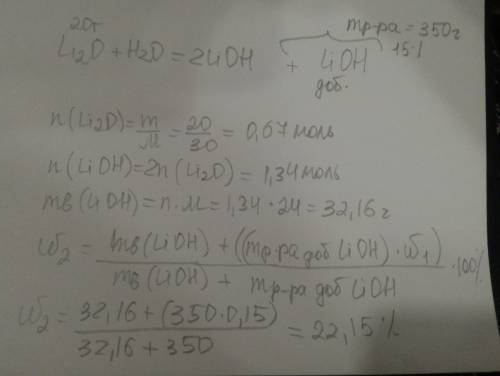 20г mр-ра = 350г
Li₂O + H₂O = 2LiOH + LiOH 15%
доб.
n(Li₂O) = m/M = 20/30 = 0,67 моль
n(LiOH) = 2n(Li₂O) = 1,34 моль
mв(LiOH) = n·M = 1,34·24 = 32,16 г
ω₂ = (mв(LiOH) + ((mр-ра доб LiOH)·ω₁))/(mв(LiOH) + mр-ра доб LiOH) ·100%
ω₂ = (32,16 + (350·0,15))/(32,16 + 350) = 22,15%